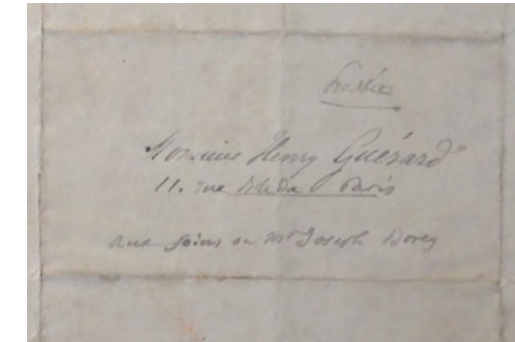 Monsieur Henry Guérard
11. rue Bréda Paris
aux soins de Mr Joseph